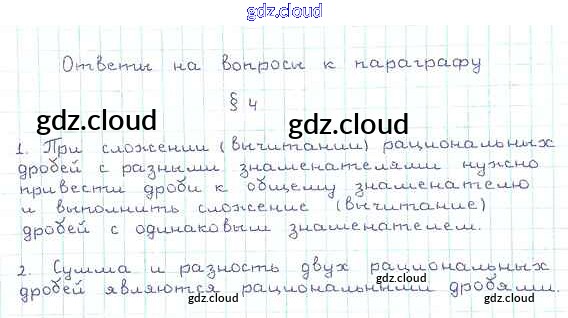 gdz.cloud
Ответы на вопросы к параграфу
§ 4
gdz.cloud
gdz.cloud
1. При сложении (вычитании) рациональных
дробей с разными знаменателями нужно
привести дроби к общему знаменателю
и выполнить сложение (вычитание)
дробей с одинаковым знаменателем.
gdz.cloud
2. Сумма и разность двух рациональных
дробей являются рациональными дробями.
gdz.cloud
gdz.cloud